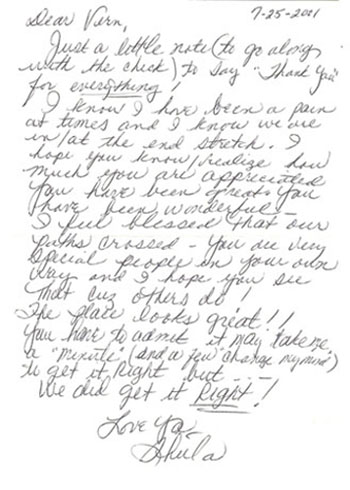 7-25-2021
Dear Vern,
Just a little note (to go along
with the check) to say "Thank You"
for everything!
I know I have been a pain
at times and I know we are
in/at the end stretch. I
hope you know/realize how
much you are appreciated
You have been great. You
have been wonderful -
I feel blessed that our
paths crossed - You are very
special people in your own
way and I hope you see
that cuz others do!
The place looks great!!
You have to admit it may take me
a "minute" (and a few change my mind)
to get it right but ----
We did get it Right!
Love Ya
Shula